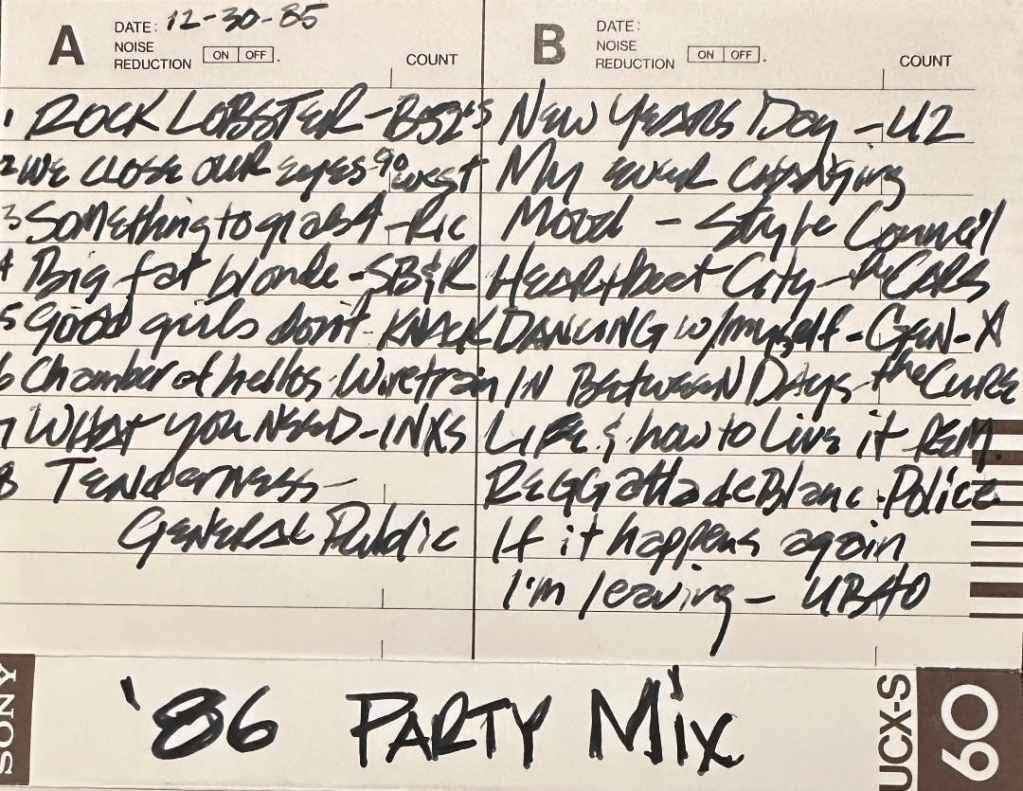 A DATE: 12-30-85
NOISE
REDUCTION ON OFF. COUNT
1 ROCK LOBSTER - B52's
2 WE CLOSE OUR EYES go west
3 Something to grab 4 - Ric
4 Big fat blonde - SB&R
5 good girls don't - KNACK
6 Chamber of hellos - Wiretrain
7 WHAT YOU NEED - INXS
8 TENderness -
GENERAL Public
B DATE:
NOISE
REDUCTION ON OFF. COUNT
NEW YEARS Day - U2
My ever changing
Mood - Style Council
HEARtbeat City - the CARS
DANCING w/myself - GEN-X
IN BETWEEN DAYS - the CURE
LIFE & how to Live it REM
REGGattadeBlanc - Police
If it happens again
I'm leaving - UB40
SONY
'86 PARTY MIX
UCX-S
60